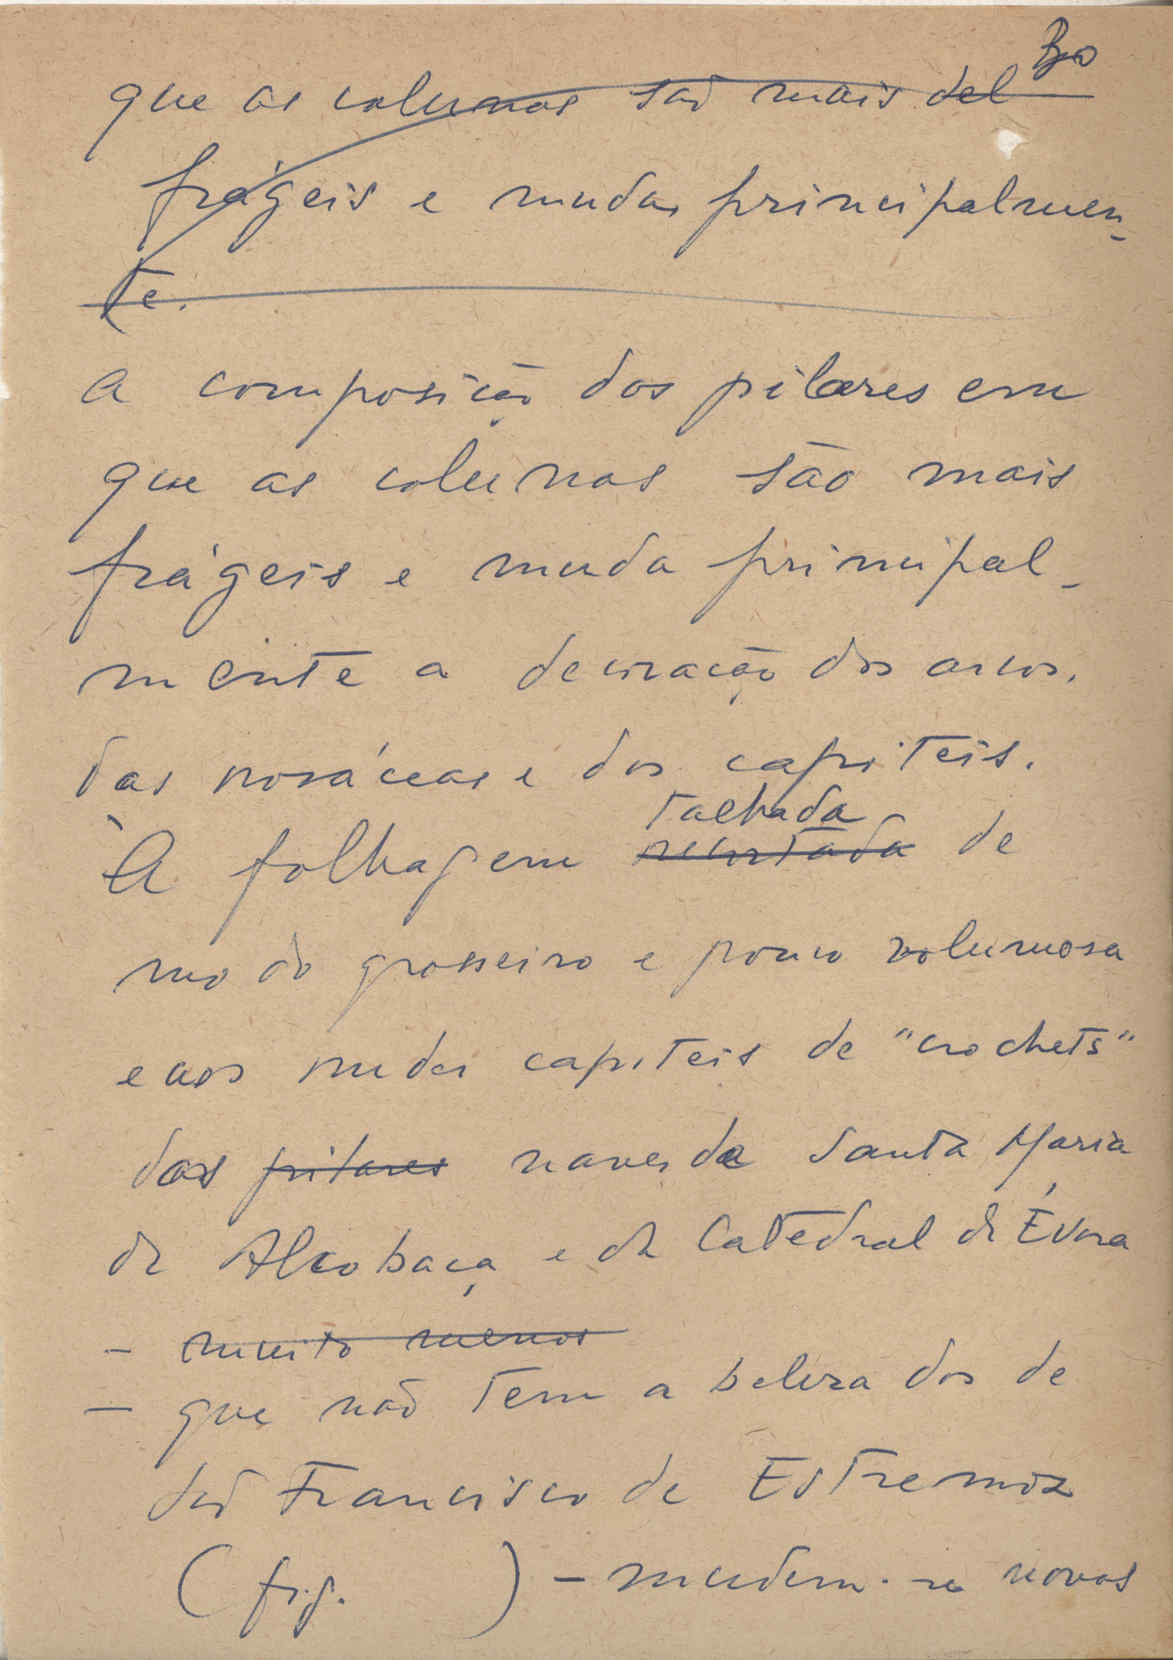 que as colunas são mais del
frágeis e muda, principalmen-
te.
a composição dos pilares em
que as colunas são mais
frágeis e muda principal-
mente a decoração dos arcos,
das rosáceas e dos capiteis.
talhada
À folhagem recortada de
modo grosseiro e pouco volumosa
e aos rudes capiteis de "crochets"
das pilares naves de Santa Maria
de Alcobaça e da Catedral de Évora
- muito menos
- que não tem a beleza dos de
São Francisco de Estremoz
(fig. ) - mudem-se novos